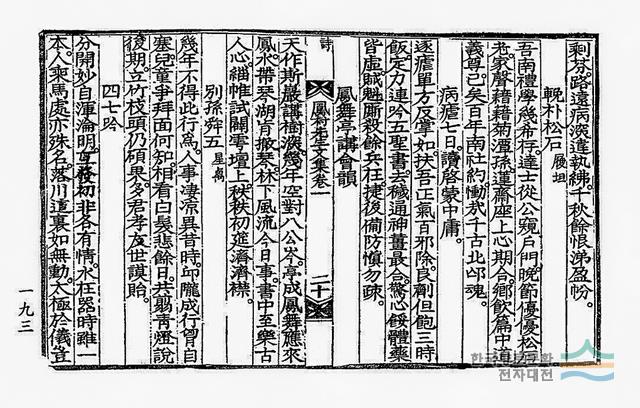 剩芬路遠病淡違執紼千秋餘恨涕盈㠳
輓朴松石 履坦
吾南禮學幾希存達士從公窺戶門晩節優優松
老家聲藉藉菊潭孫蓮齋座上心期合鄕飮篇中
義尊已矣百年南社約慟哉千古北邙魂
病瘧七日讀啓蒙中庸
逐瘧單方反掌如扶吾正氣百邪除良劑但飽三時
飯定力連吟五聖書去穢通神薑最合驚心餒體藥
皆虛賊魁斯殺餘兵在捷後僃防愼勿疎
鳳舞亭講會韻
天作斯巖講樹深幾年空對八公岑亭成鳳舞應來
鳳水帶琴湖肯撤琴林下風流今日事書中至樂古
人心緇帷試闢雩壇上秩秩初筵濟濟襟
別孫舜五 星禹
幾年不得此行爲人事凄凉異昔時邱隴成行曾自
塞兒童爭拜面何知相看白髮悲餘日共翦靑燈說
後期立竹枝頭仍碩果多君孝友世謨貽
四七吟
分開妙自渾淪明互發初非各有情水在器時雖一
本人乘馬處亦殊名落川這裏如無動太極於儀豈
詩
鳳村先生文集卷一
二十
一九三
한국학
전자대전